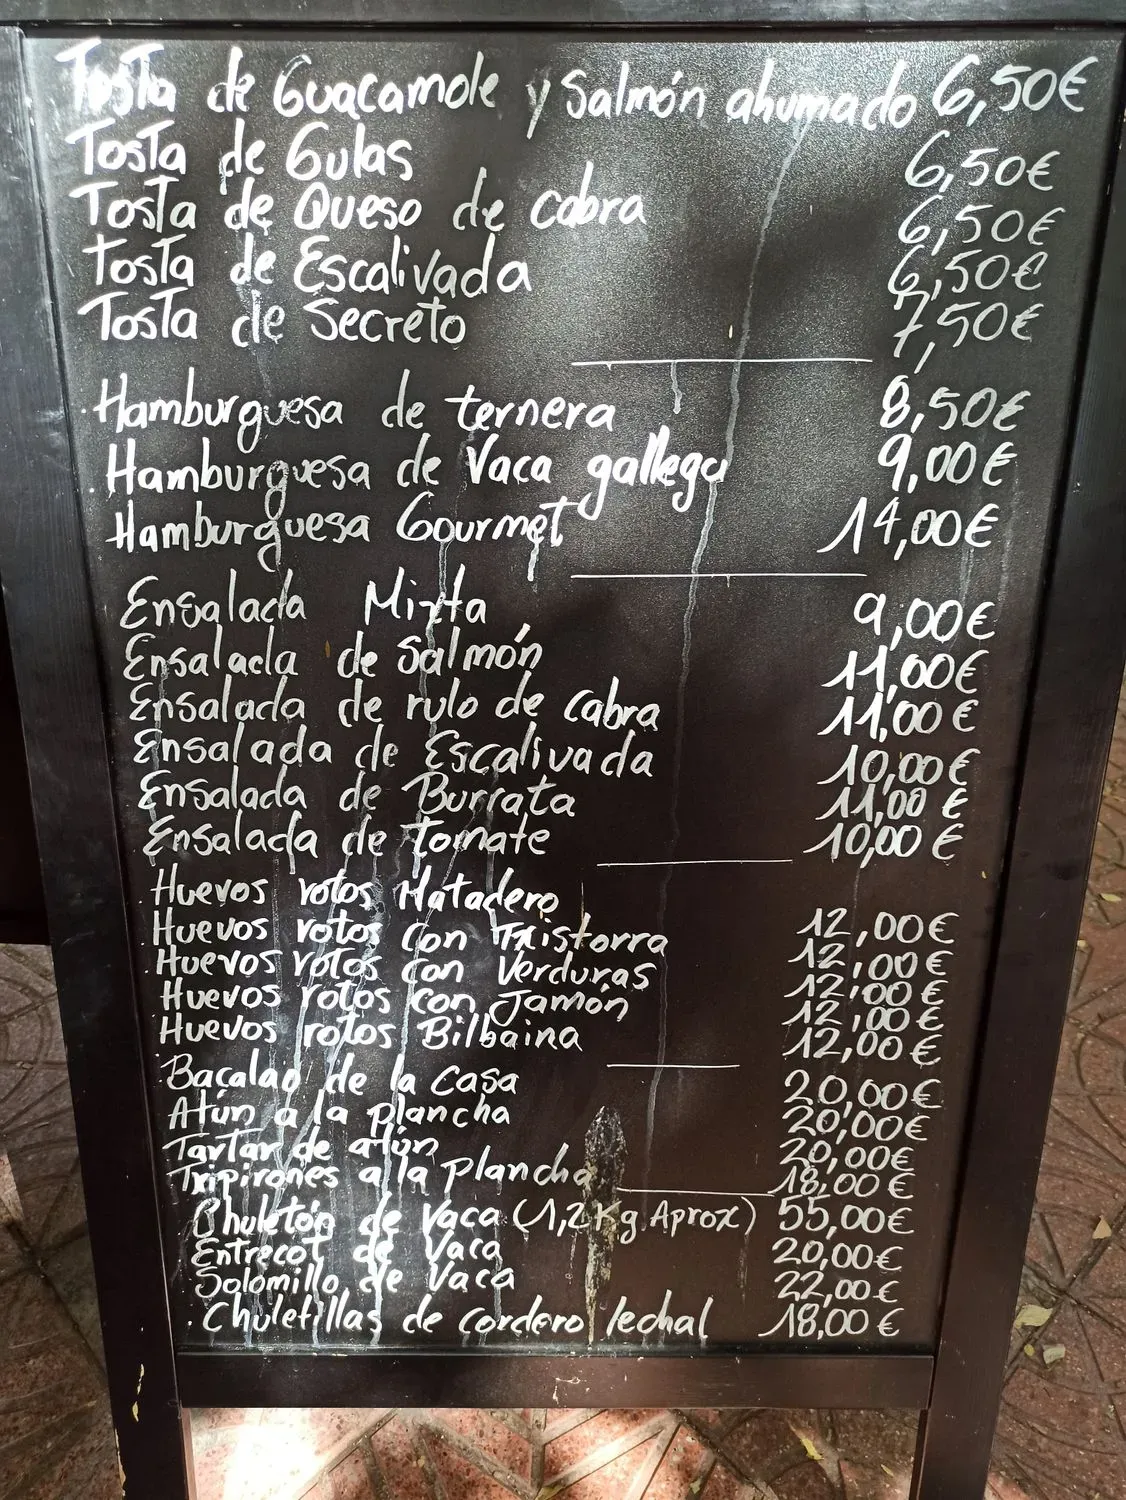 Tosta de Guacamole y Salmón ahumado 6,50€
Tosta de Gulas 6,50€
Tosta de Queso de cabra 6,50€
Tosta de Escalivada 6,50€
Tosta de Secreto 7,50€
Hamburguesa de ternera 8,50€
Hamburguesa de Vaca gallega 9,00€
Hamburguesa Gourmet 14,00€
Ensalada Mixta 9,00€
Ensalada de Salmón 11,00€
Ensalada de rulo de cabra 11,00€
Ensalada de Escalivada 10,00€
Ensalada de Burrata 11,00€
Ensalada de tomate 10,00€
Huevos rotos Matadero 12,00€
Huevos rotos con Txistorra 12,00€
Huevos rotos con Verduras 12,00€
Huevos rotos con Jamón 12,00€
Huevos rotos Bilbaina 12,00€
Bacalao de la casa 20,00€
Atún a la plancha 20,00€
Tartar de atún 20,00€
Txipirones a la plancha 18,00€
Chuletón de Vaca (1,2 Kg Aprox) 55,00€
Entrecot de Vaca 20,00€
Solomillo de Vaca 22,00€
Chuletillas de cordero lechal 18,00€